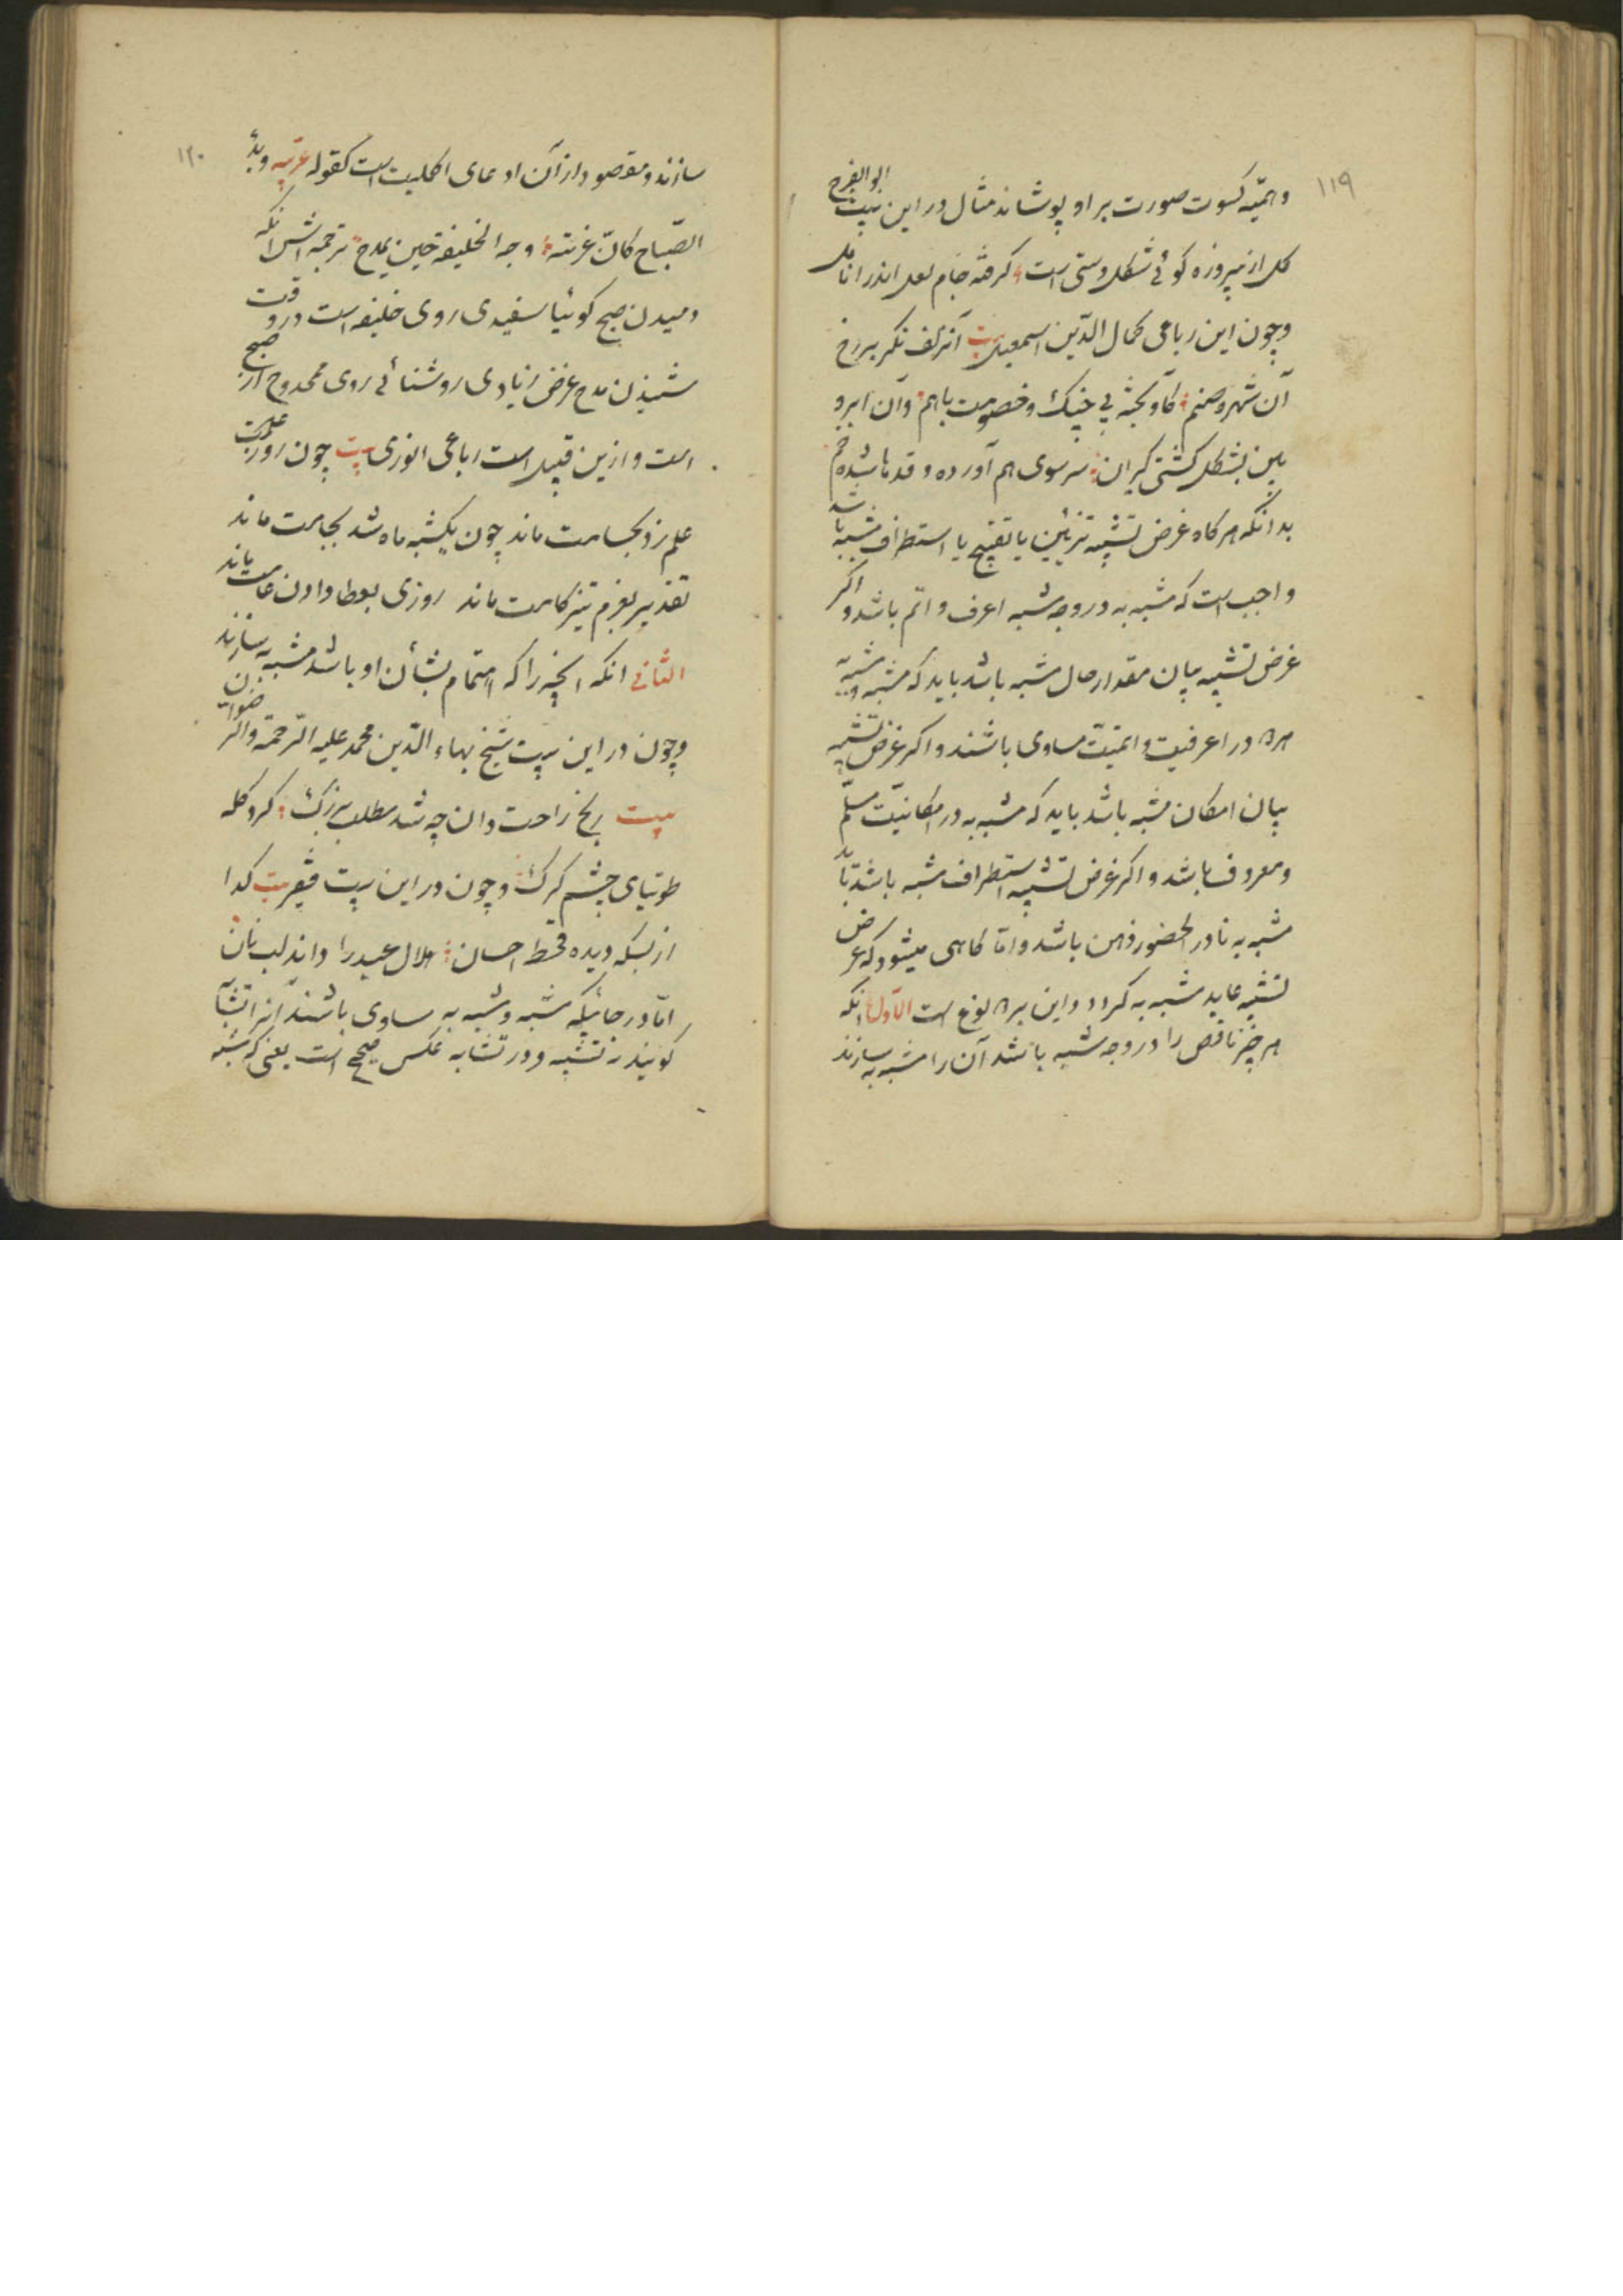 ۱۱۹
وهمیّه کسوت صورت بر او پوشاند مثال در این بیت ابوالفرج
کل از پیروزه کوئی شکل دستی است کرفته جام لعل اندر انامل
وچون این رباعی کمال الدّین اسمعیل بیت آنزلف نکر بر رخ
آن شهره صنم کآویخته بی جنک و خصومت باهم وآن ابرو
بین بشکل کشتی کیران سر سوی هم آورده و قدها شده خم
بدانکه هر کاه غرض تشبیه تزیین یا تقبیح یا استطراف مشبه باشد
واجب است که مشبه به در وجه شبه اعرف و اتم باشد و اکر
غرض تشبیه بیان مقدار حال مشبه باشد باید که مشبه و مشبه به
هر ۲ در اعرفیت و اتمّیت مساوی باشند و اکر غرض تشبیه
بیان امکان مشبه باشد باید که مشبه به در امکانیّت مسلّم
ومعروف باشد و اکر غرض تشبیه استطراف مشبه باشد باید
مشبه به نادر الحضور ذهن باشد و امّا کاهی میشود که غرض
تشبیه عاید مشبه به کردد و این بر ۲ نوع است الاوّل انکه
هر چیز ناقص را در وجه شبه باشد آن را مشبه به سازند
۱۲۰
سازند و مقصود از آن ادعای اکملیت است کقوله عربیّه وبدأ
الصّباح کانّ غرّته وجه الخلیفة حین یمدح ترجمه اش انکه
دمیدن صبح کوئیا سفیدی روی خلیفه است در وقت
شنیدن مدح غرض زیادی روشنائی روی ممدوح از صبح
است و ازین قبیل است رباعی انوری بیت چون روز علمت
علم زد بحسامت ماند چون یکشبه ماه شد بجامت ماند
تقدیر بعزم تیز کامت ماند روزی بعطا دادن عامت ماند
الثانی انکه انچه را که اهتمام بشأن او باشد مشبه به سازند
وچون در این بیت شیخ بهاء الدّین محمد علیه الرّحمة والرّضوان
بیت رنج راحت دان چه شد مطلب بزرک کرد کله
طوتیای چشم کرک وچون در این بیت فقیر بیت کدا
از بسکه دیده قحط احسان هلال عید را داند لب نان
امّا در جائیکه مشبه و مشبه به مساوی باشند آنرا تشابه
کویند نه تشبیه و در تشابه عکس صحیح است یعنی که مشبه